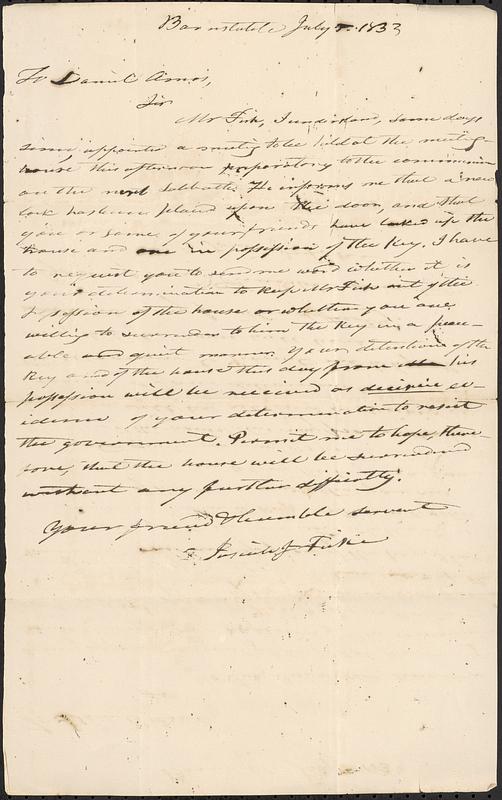 Barnstable July 5. 1833
To Daniel Amos,
Sir
Mr Fish, I understand, some days
since, appointed a meeting to be held at the meeting-
house this afternoon preparatory to the communion
on the next Sabbath. He informs me that a new
lock has been placed upon the door, and that
you or some of your friends have locked up the
house and are in possession of the Key. I have
to request you to send me word whether it is
your determination to keep Mr Fish out of the
possession of the house or whether you are
willing to surrender to him the Key in a peac-
able and quiet manner. Your detention of the
Key and of the house this day from his
possession will be received as decisive ev-
idence of your determination to resist
the government. Permit me to hope, there-
fore, that the house will be surrendered
without any further difficulty.
Your friend & humble servant
Josiah J Fiske